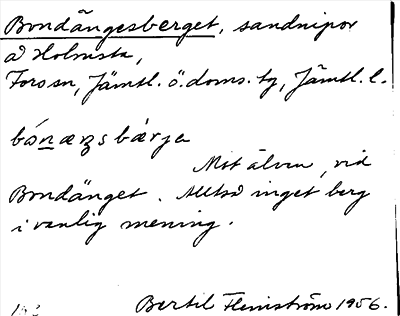 Bondängesberget, sandnipor
å Holmsta,
Fors sn, Jämtl. ö. doms. tg, Jämtl. l.
bónæŋsbærja
Mot älven, vid
Bondänget. Alltså inget berg
i vanlig mening.
Bertil Flemström 1956.